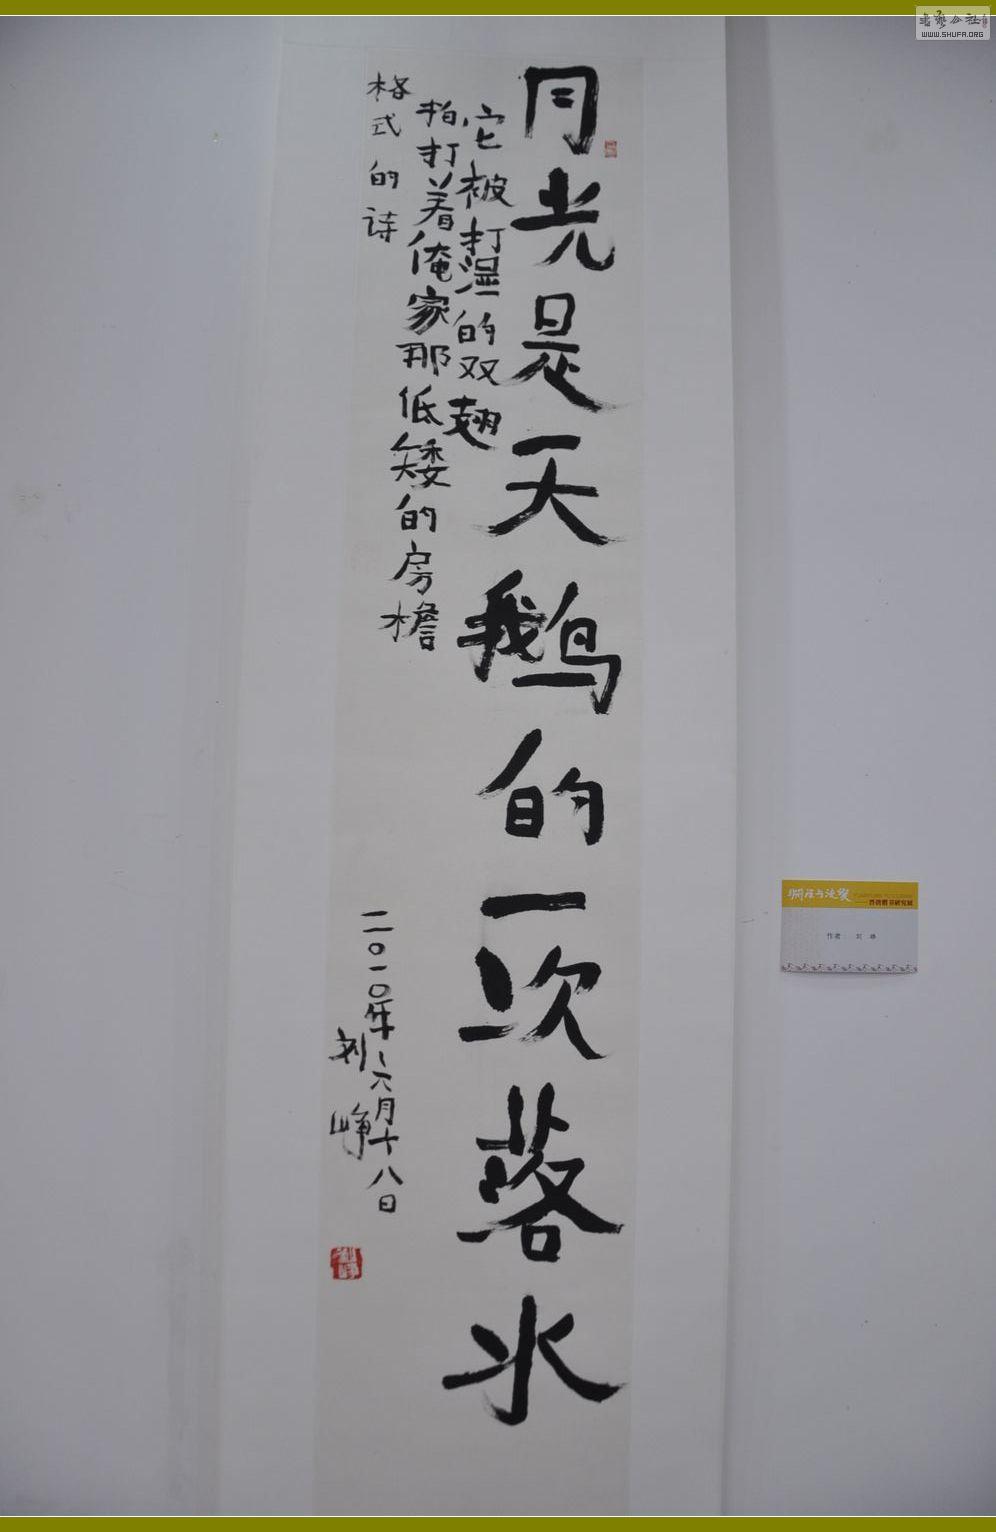 月光是天鹅的一次落水
它被打湿的双翅
拍打着俺家那低矮的房檐
格式的诗
二〇一〇年六月十八日
刘峥
作者： 刘 峥
WWW.SHUFA.ORG